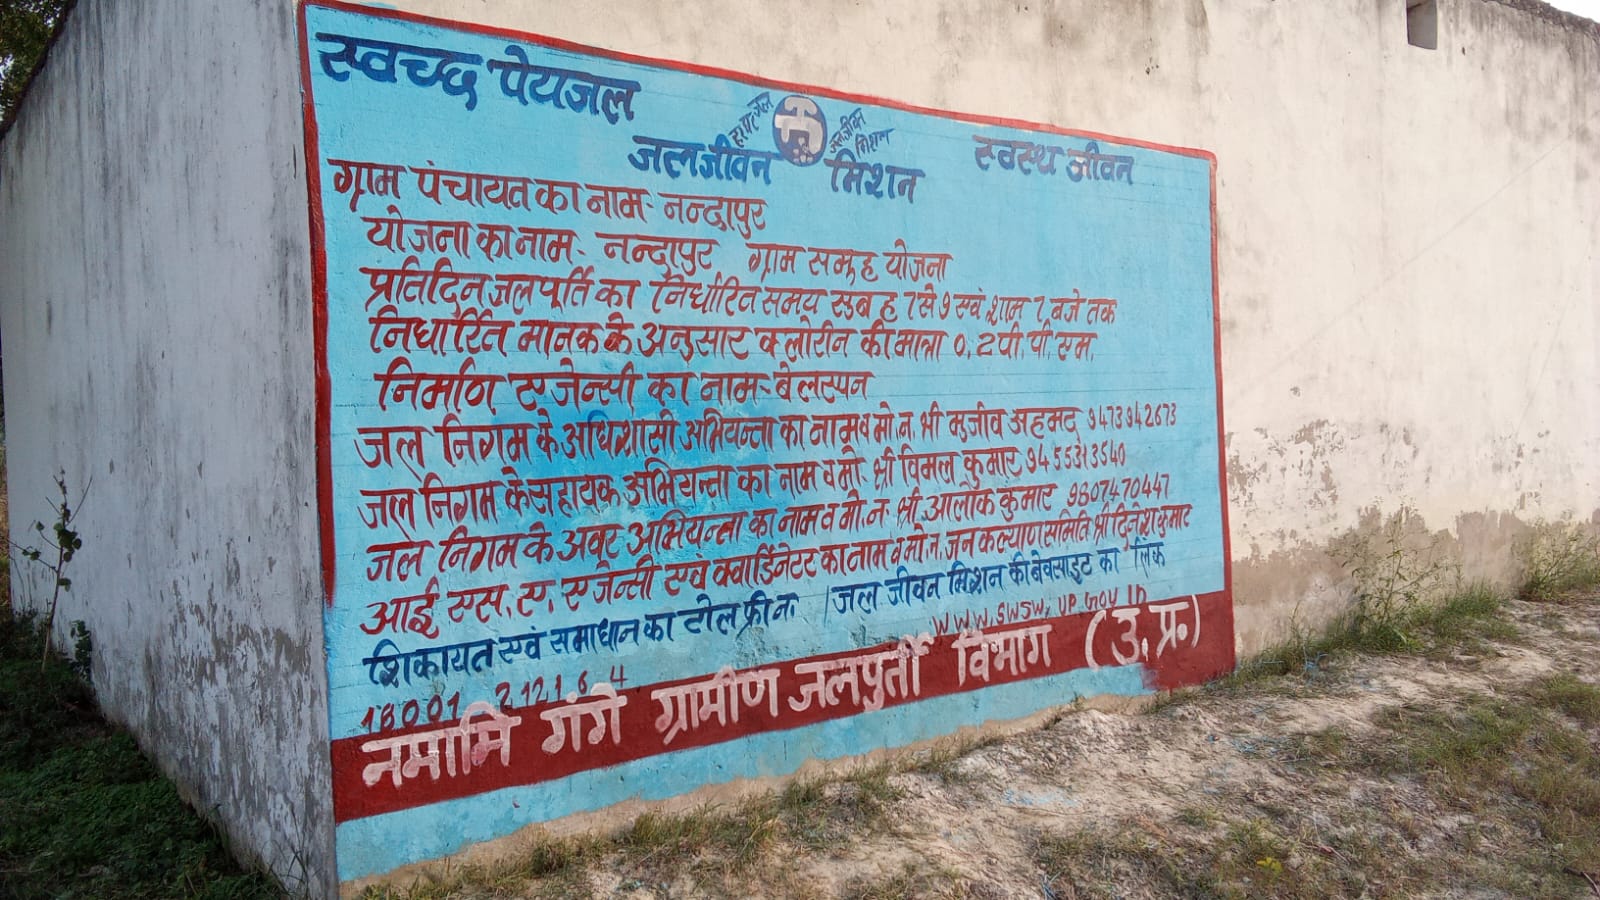 स्वच्छ पेयजल
हर घर जल
जल जीवन मिशन
जल जीवन मिशन
स्वस्थ जीवन
ग्राम पंचायत का नाम- नन्दापुर
योजना का नाम- नन्दापुर ग्राम समुह योजना
प्रतिदिन जलपूर्ति का निर्धारित समय सुबह 7 से 9 एवं शाम 7 बजे तक
निर्धारित मानक के अनुसार क्लोरीन की मात्रा 0.2 पी. पी. एम.
निर्माण एजेन्सी का नाम- बेलस्पन
जल निगम के अधिशासी अभियन्ता का नाम व मो. न. श्री मुजीव अहमद 9473942673
जल निगम के सहायक अभियन्ता का नाम व मो- श्री विमल कुमार 9455313540
जल निगम के अवर अभियन्ता का नाम व मो. न- श्री आलोक कुमार 9807470447
आई एस. ए. एजेन्सी एवं क्वार्डिनेटर का नाम व मो. न. जन कल्याण समिति श्री दिनेश कुमार
शिकायत एवं समाधान का टोल फ्री न. / जल जीवन मिशन की बेवसाइट का लिंक
18001 212164 www.swsm.up.gov in
नमामि गंगे ग्रामीण जलपुर्ती विभाग (उ. प्र.)